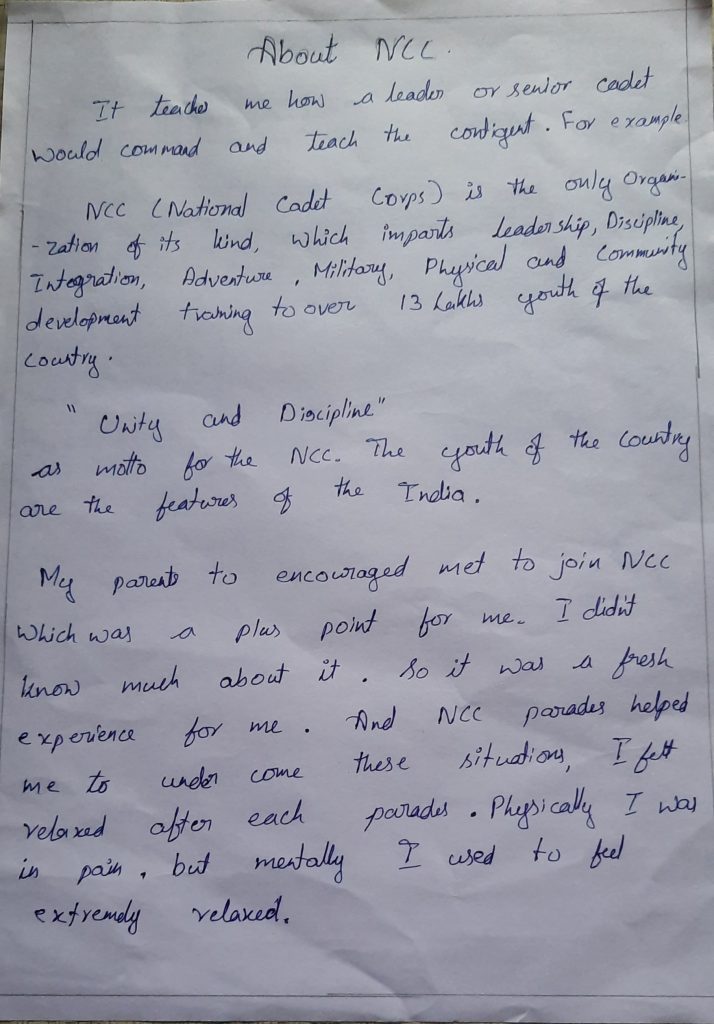 About NCC.
It teaches me how a leader or senior cadet
would command and teach the contigent. For example
NCC (National Cadet Corps) is the only Organi-
-zation of its kind, which imparts leadership, Discipline,
Integration, Adventure, Military, Physical and Community
development training to over 13 Lakhs youth of the
country.
"Unity and Discipline"
as motto for the NCC. The youth of the country
are the features of the India.
My parents to encouraged met to join NCC
which was a plus point for me. I didn't
know much about it. So it was a fresh
experience for me. And NCC parades helped
me to under come these situations, I felt
relaxed after each parades. Physically I was
in pain, but mentally I used to feel
extremely relaxed.